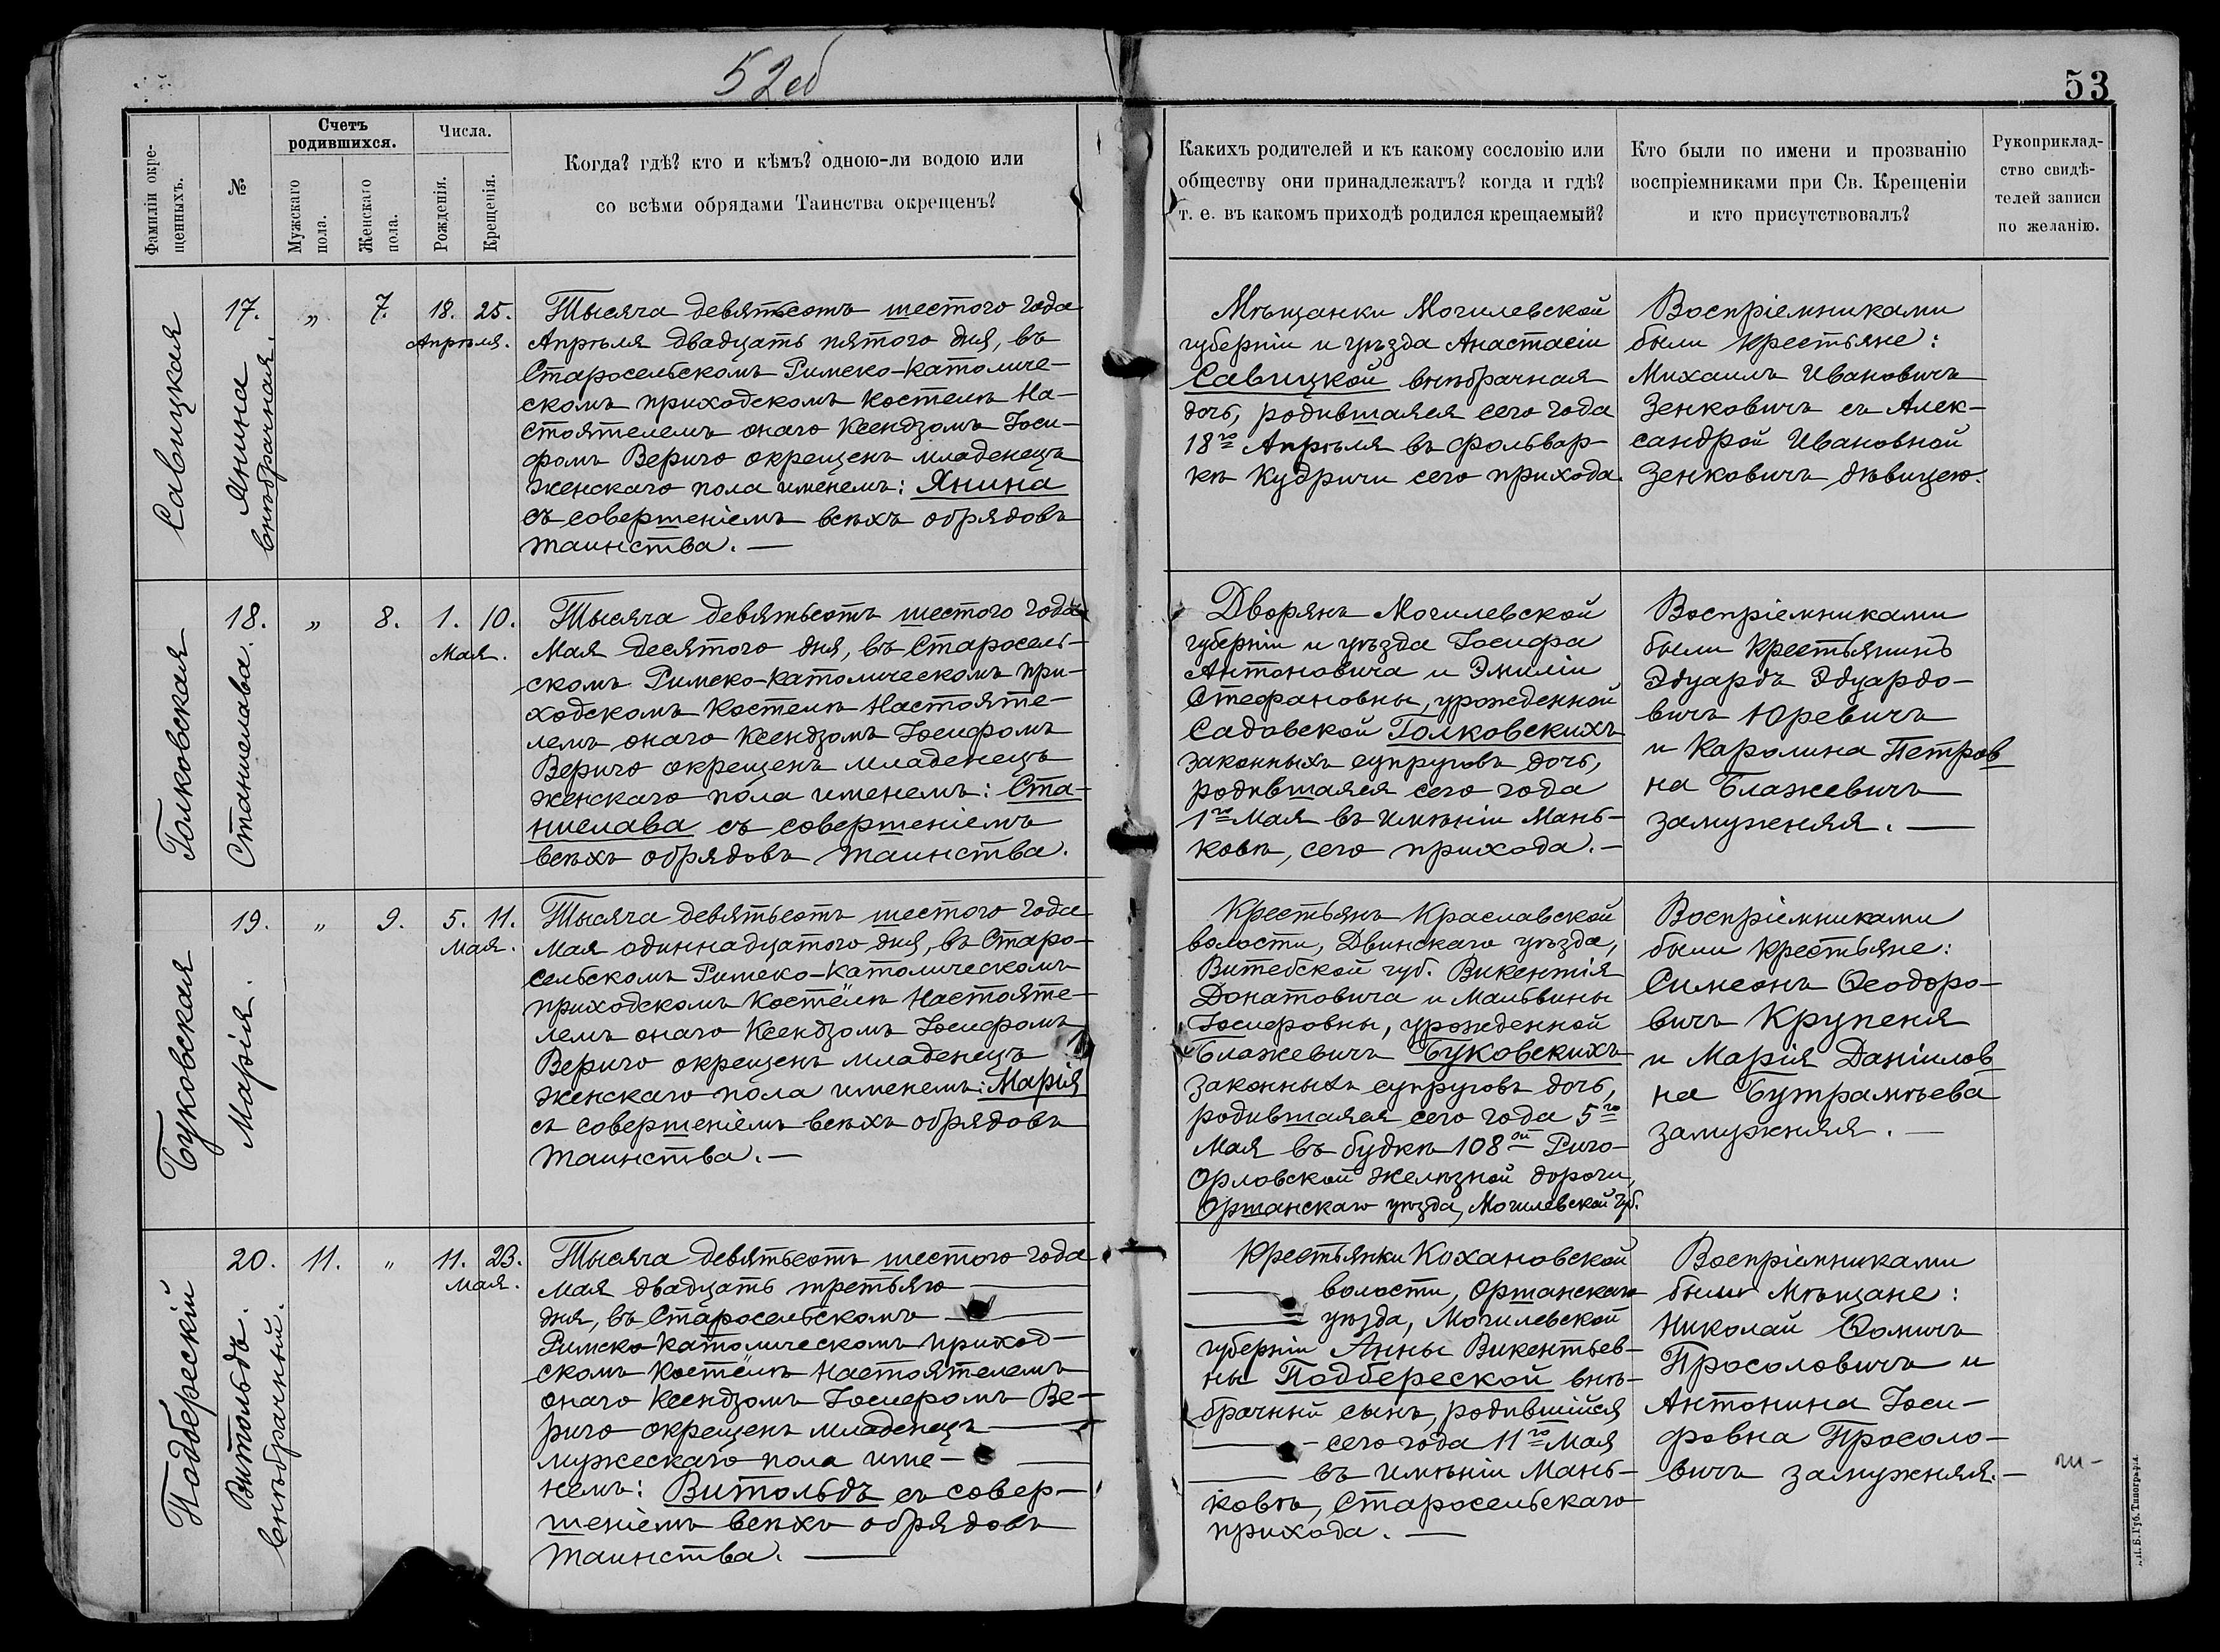 52об
53
Фамиліи окре-
щенныхъ.
№
Счетъ
родившихся.
Мужскаго
пола.
Женскаго
пола.
Числа.
Рожденія.
Крещенія.
Когда? гдѣ? кто и кѣмъ? одною-ли водою или
со всѣми обрядами Таинства окрещенъ?
Какихъ родителей и къ какому сословію или
обществу они принадлежатъ? когда и гдѣ?
т. е. въ какомъ приходѣ родился крещаемый?
Кто были по имени и прозванію
воспріемниками при Св. Крещеніи
и кто присутствовалъ?
Рукоприклад-
ство свидѣ-
телей записи
по желанію.
Савицкая
17.
Янина
внѣбрачная.
„
7.
18. 25.
Апрѣля.
Тысяча девятьсотъ шестого года
Апрѣля двадцать пятого дня, въ
Старосельскомъ Римско-Католиче-
скомъ приходскомъ костелѣ На-
стоятелемъ онаго Ксендзомъ Іоси-
фомъ Вериго окрещенъ младенецъ
женскаго пола именемъ: Янина
съ совершеніемъ всѣхъ обрядовъ
таинства. —
Мѣщанки Могилевской
губерніи и уѣзда Анастасіи
Савицкой внѣбрачная
дочь, родившаяся сего года
18го Апрѣля въ фольвар-
кѣ Кудричи сего прихода.
Воспріемниками
были крестьяне:
Михаилъ Ивановичъ
Зенковичъ съ Алек-
сандрой Ивановной
Зенковичъ дѣвицею.
Голковская
18.
Станислава.
„
8.
1. 10.
Мая.
Тысяча девятьсотъ шестого года
Мая десятого дня, въ Старосель-
скомъ Римско-Католическомъ при-
ходскомъ костелѣ Настояте-
лемъ онаго Ксендзомъ Іосифомъ
Вериго окрещенъ младенецъ
женскаго пола именемъ: Ста-
нислава съ совершеніемъ
всѣхъ обрядовъ таинства.
Дворянъ Могилевской
губерніи и уѣзда Іосифа
Антоновича и Эмиліи
Стефановны, урожденной
Садовской Голковскихъ
законныхъ супруговъ дочь,
родившаяся сего года
1го Мая въ имѣніи Мань-
ковѣ, сего прихода. —
Воспріемниками
были Крестьянинъ
Эдуардъ Эдуардо-
вичъ Юревичъ
и Каролина Петров
на Блажевичъ
замужняя. —
Буковская
19.
Марія.
„
9.
5. 11.
Мая.
Тысяча девятьсотъ шестого года
Мая одиннадцатого дня, въ Старо-
сельскомъ Римско-Католическомъ
приходскомъ Костёлѣ Настояте-
лемъ онаго Ксендзомъ Іосифомъ
Вериго окрещенъ младенецъ
женскаго пола именемъ: Марія
съ совершеніемъ всѣхъ обрядовъ
таинства. —
Крестьянъ Краславской
волости, Двинскаго уѣзда,
Витебской губ. Викентія
Донатовича и Мальвины
Іосифовны, урожденной
Блажевичъ Буковскихъ
законныхъ супруговъ дочь,
родившаяся сего года 5го
Мая въ будкѣ 108ой Риго-
Орловской желѣзной дороги,
Оршанскаго уѣзда, Могилевской губ.
Воспріемниками
были крестьяне:
Симеонъ Ѳеодоро-
вичъ Крупеня
и Марія Даніилов
на Бутрамѣева
замужняя. —
Подберескій
20.
Витольдъ.
внѣбрачный.
11.
„
11. 23.
Мая.
Тысяча девятьсотъ шестого года
Мая двадцать третьяго —
дня, въ Старосельскомъ —
Римско-Католическомъ приход-
скомъ Костёлѣ Настоятелемъ
онаго Ксендзомъ Іосифомъ Ве-
риго окрещенъ младенецъ —
мужескаго пола име-
немъ: Витольдъ съ совер-
шеніемъ всѣхъ обрядовъ
таинства. —
Крестьянки Кохановской
— волости, Оршанскаго
— уѣзда, Могилевской
губерніи Анны Викентьев-
ны Подбереской внѣ-
брачный сынъ, родившійся
— сего года 11го Мая
— въ имѣніи Мань-
ковѣ, Старосельскаго
прихода. —
Воспріемниками
были Мѣщане:
Николай Ѳомичъ
Просоловичъ и
Антонина Іоси-
фовна Просоло-
вичъ замужняя. —
Губ. Типографія.